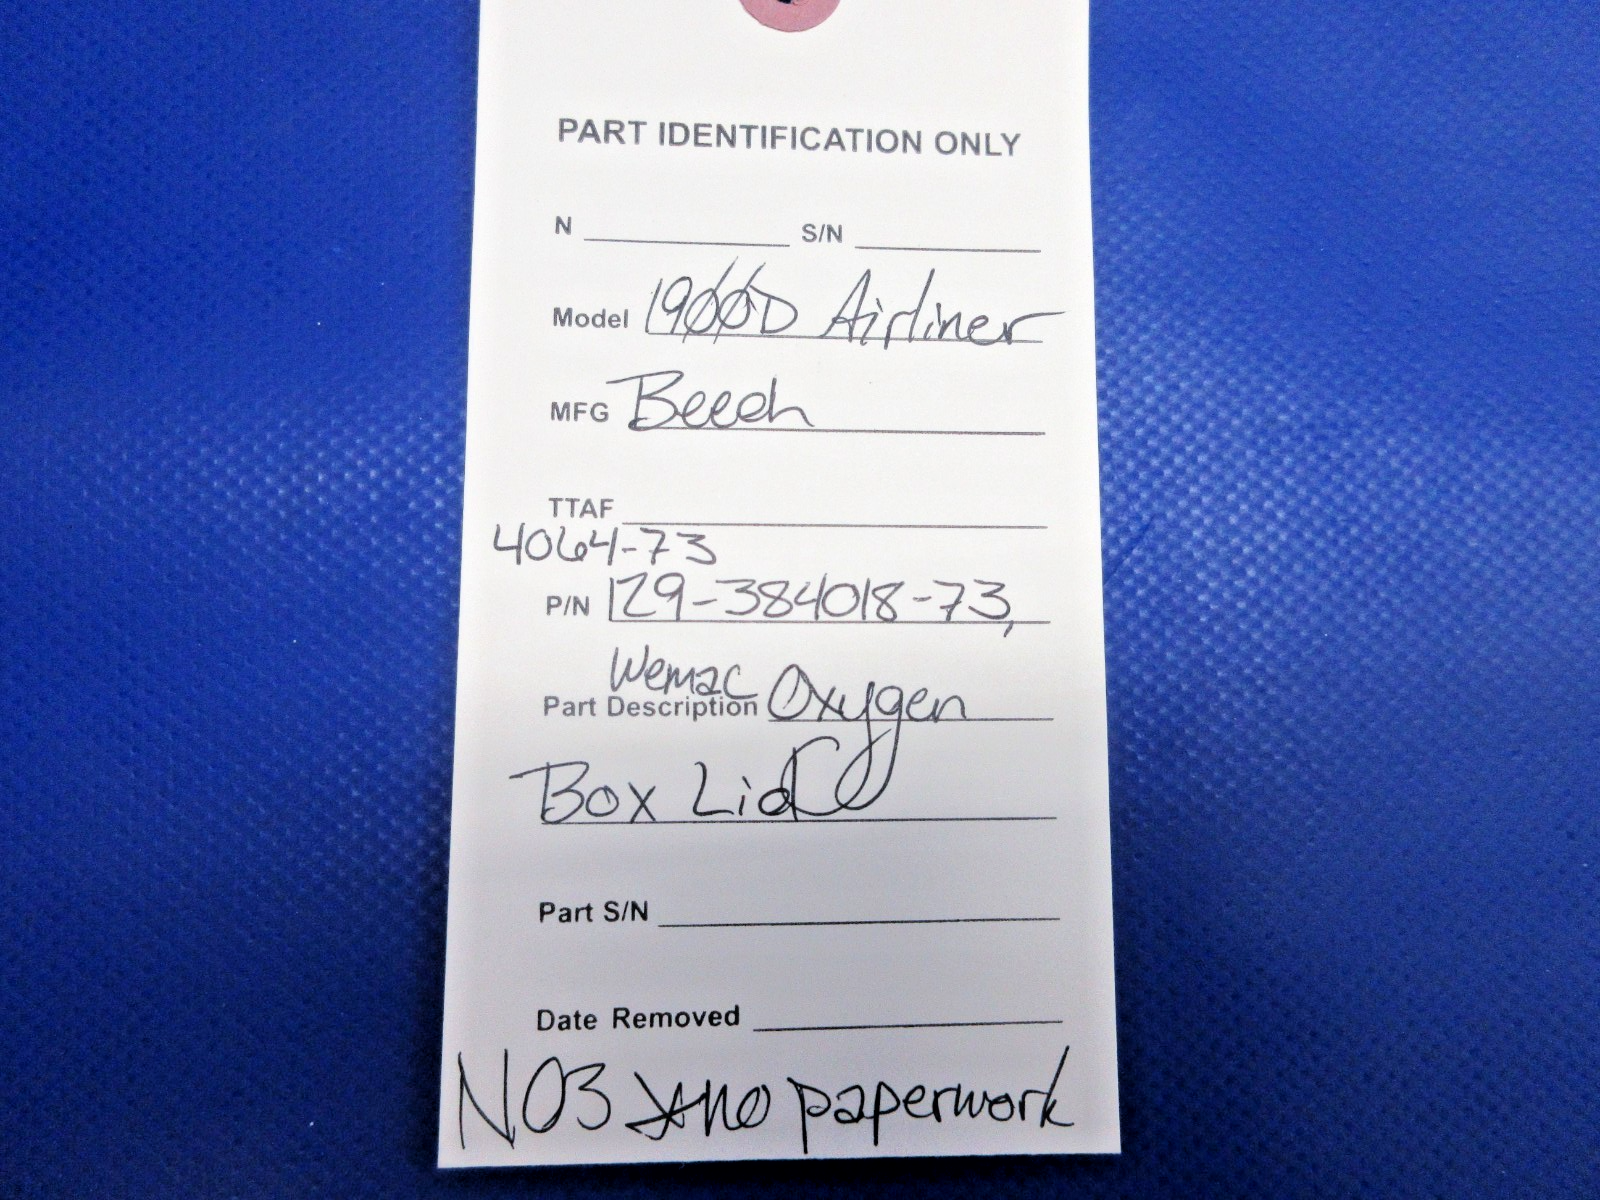 PART IDENTIFICATION ONLY
N S/N
Model 1900D Airliner
MFG Beech
TTAF
4064-73
P/N 129-384018-73,
Wemac
Part Description Oxygen
Box Lid
Part S/N
Date Removed
N03 *no paperwork